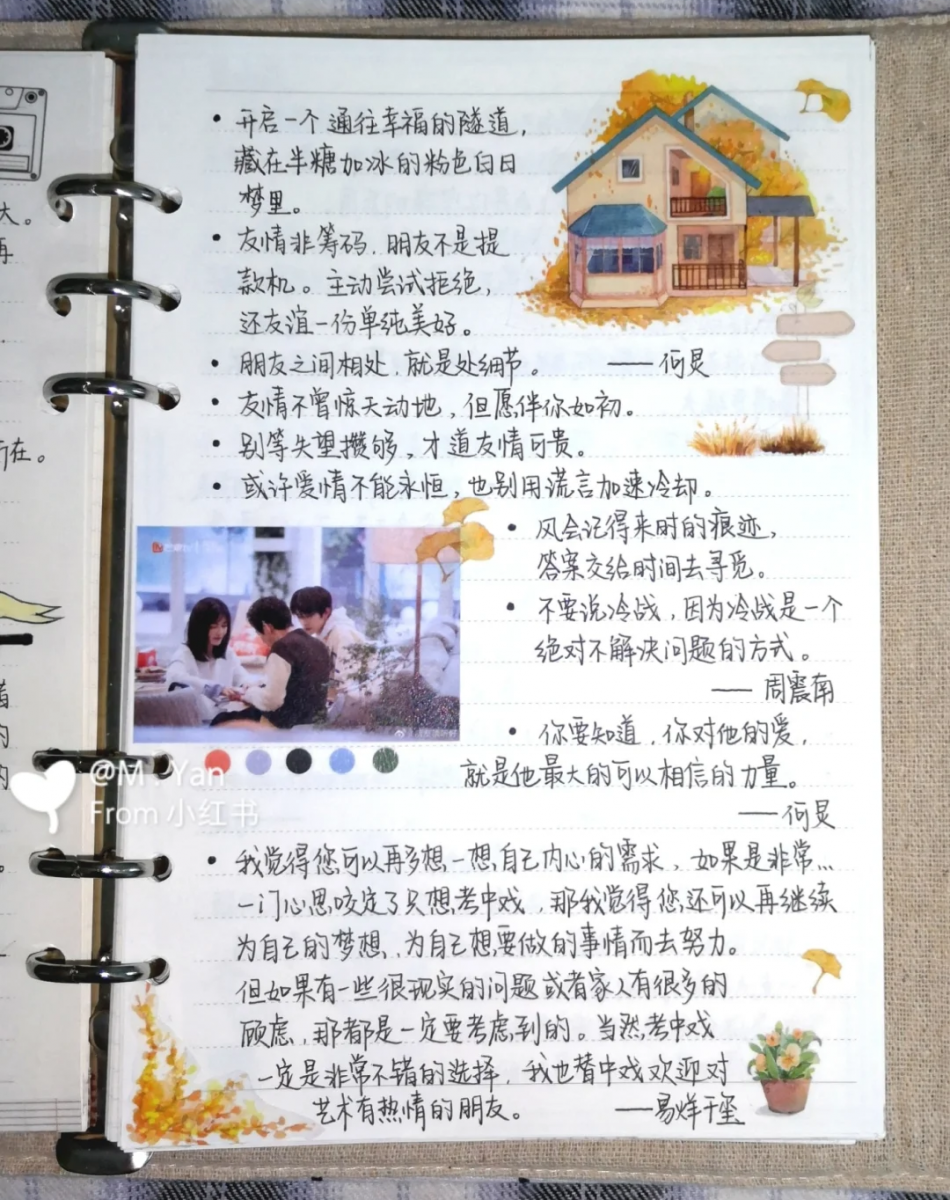 大。
再
所在。
• 开启一个通往幸福的隧道，
藏在半糖加冰的粉色白日
梦里。
• 友情非筹码，朋友不是提
款机。主动尝试拒绝，
还友谊一份单纯美好。
• 朋友之间相处，就是处细节。 ——何炅
• 友情不曾惊天动地，但愿伴你如初。
• 别等失望攒够，才道友情可贵。
• 或许爱情不能永恒，也别用谎言加速冷却。
• 风会记得来时的痕迹，
答案交给时间去寻觅。
• 不要说冷战，因为冷战是一个
绝对不解决问题的方式。
—— 周震南
• 你要知道，你对他的爱，
就是他最大的可以相信的力量。
——何炅
@M . Yan
From 小红书
• 我觉得您可以再多想一想自己内心的需求，如果是非常…
一门心思咬定了只想考中戏，那我觉得您还可以再继续
为自己的梦想，为自己想要做的事情而去努力。
但如果有一些很现实的问题或者家人有很多的
顾虑，那都是一定要考虑到的。当然考中戏
一定是非常不错的选择，我也替中戏欢迎对
艺术有热情的朋友。 ——易烊千玺